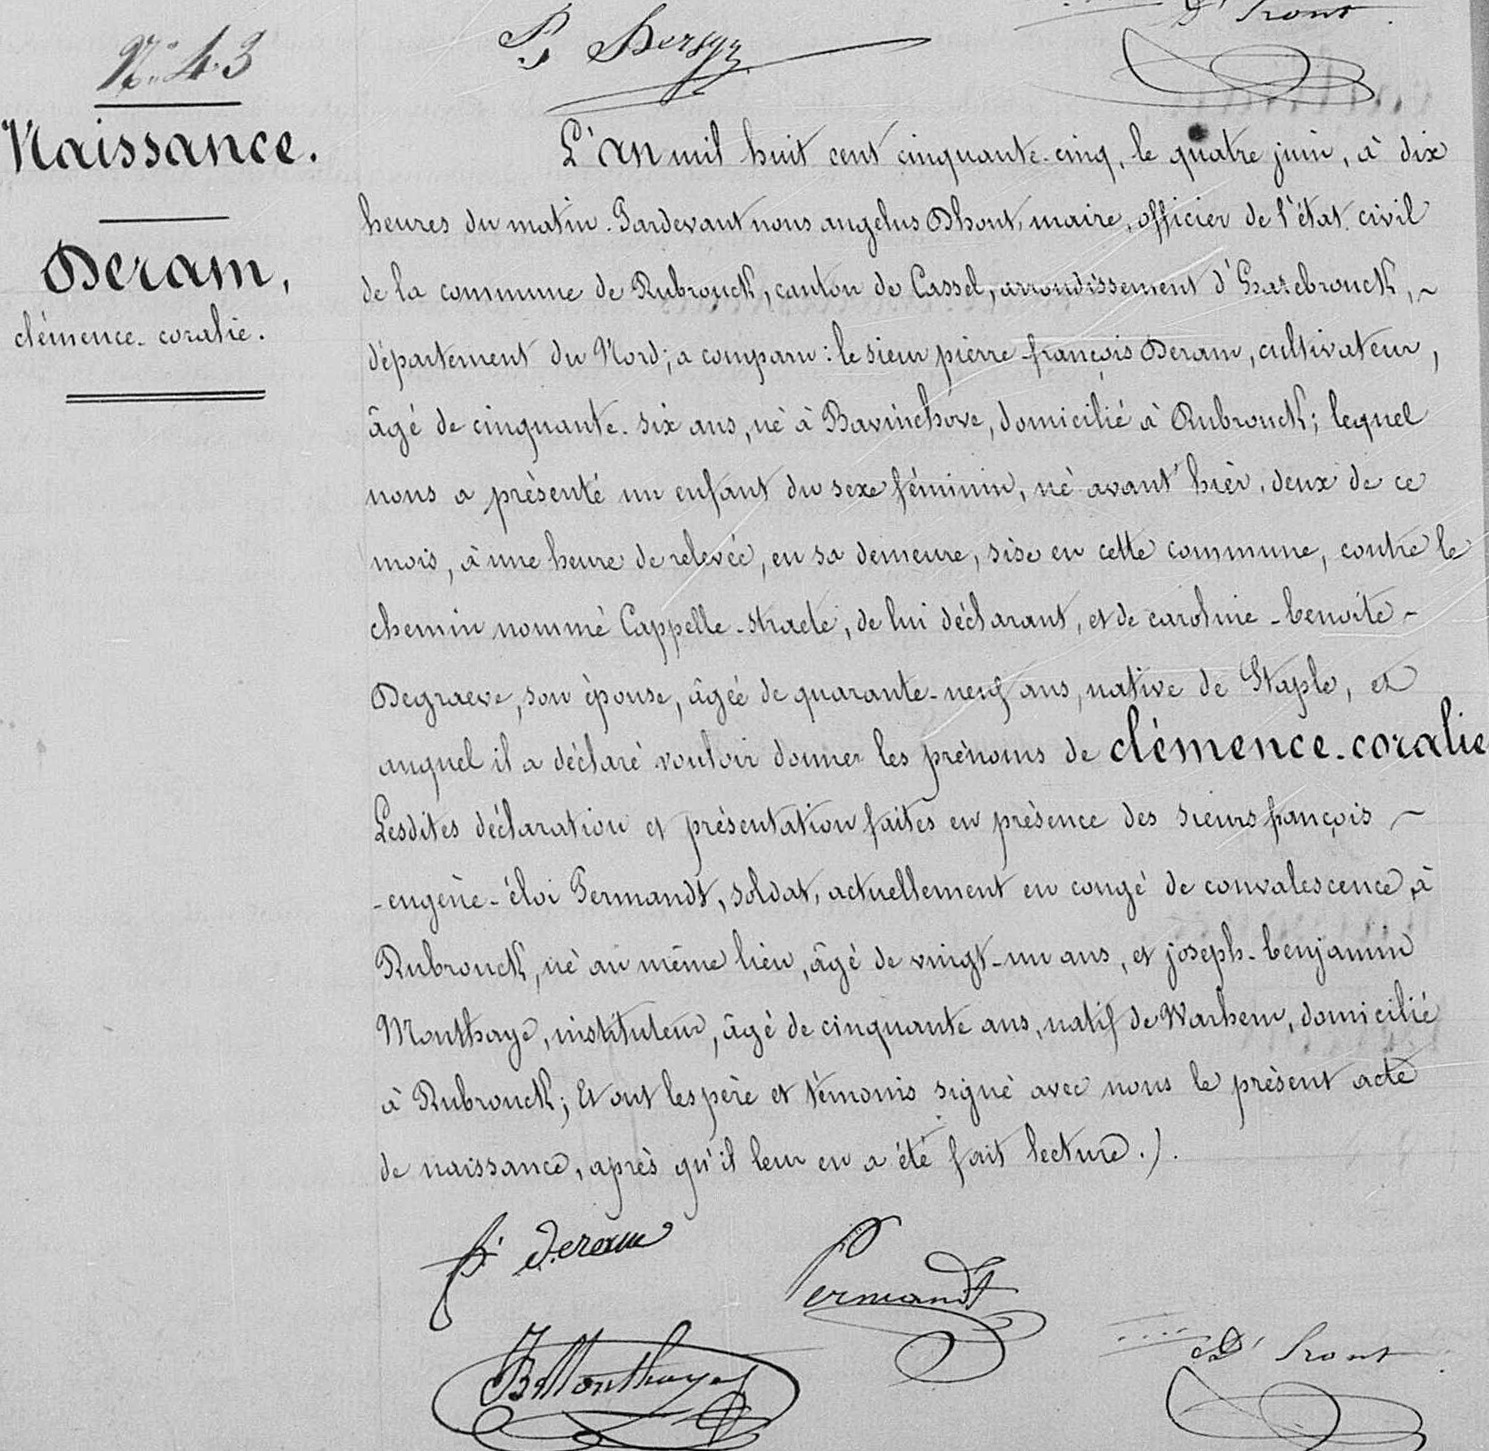 P. Dersyn
D'hont
N.° 43
Naissance.
Deram,
clémence-coralie.
L'an mil huit cent cinquante-cinq, le quatre juin, à dix
heures du matin. Pardevant nous angelus Dhont, maire, officier de l'état civil
de la commune de Rubrouck, canton de Cassel, arrondissement d'Hazebrouck, ~
département du Nord; a comparu: le sieur pierre-françois Deram, cultivateur,
âgé de cinquante-six ans, né à Bavinchove, domicilié à Rubrouck; lequel
nous a présenté un enfant du sexe féminin, né avant'hier, deux de ce
mois, à une heure de relevée, en sa demeure, sise en cette commune, contre le
chemin nommé Cappelle-straete, de lui déclarant, et de caroline-benoîte-
Degraeve, son épouse, âgée de quarante-neuf ans, native de Staple, et
auquel il a déclaré vouloir donner les prénoms de clémence-coralie
Lesdites déclaration et présentation faites en présence des sieurs françois ~
-eugène-éloi Permandt, soldat, actuellement en congé de convalescence à
Rubrouck, né au même lieu, âgé de vingt-un ans, et joseph-benjamin
Monthaye, instituteur, âgé de cinquante ans, natif de Warhem, domicilié
à Rubrouck; Et ont les père et témoins signé avec nous le présent acte
de naissance, après qu'il leur en a été fait lecture./.
p. deram
Permandt
JB Monthaye
D'hont